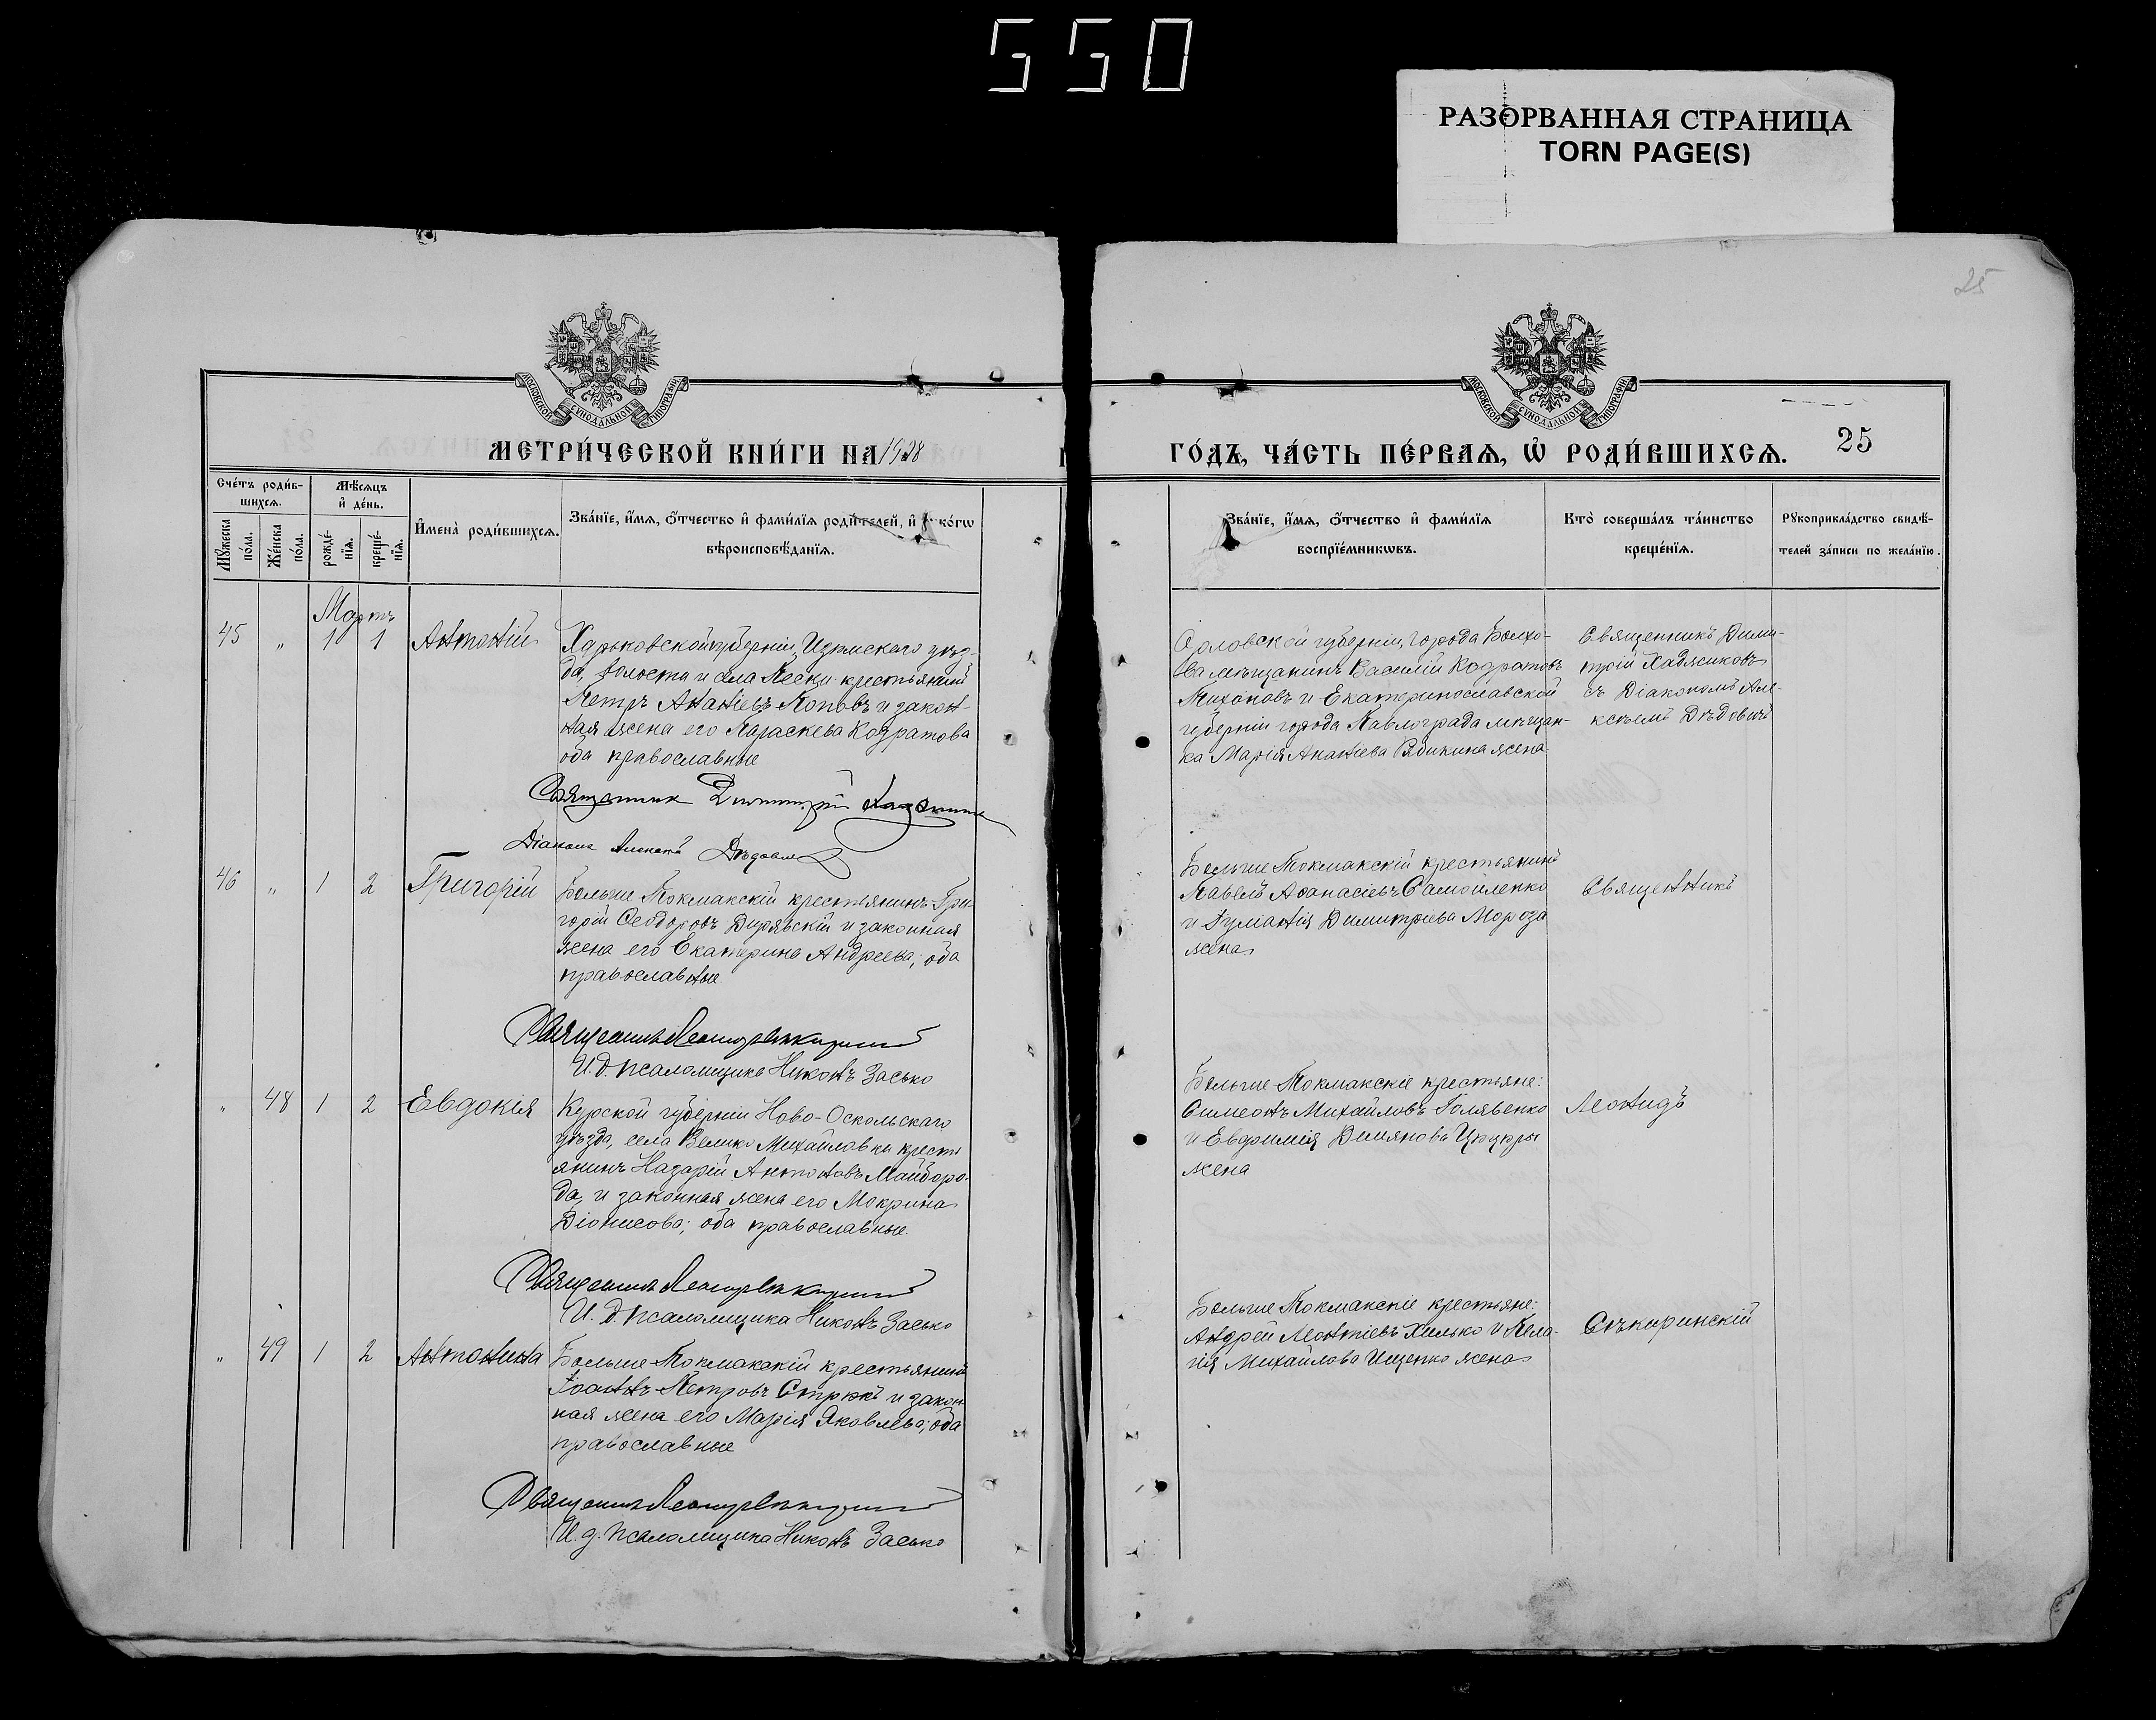 550
РАЗОРВАННАЯ СТРАНИЦА
TORN PAGE(S)
25
МОСКОВСКОЙ СѴНОДАЛЬНОЙ ТИПОГРАФІИ
МОСКОВСКОЙ СѴНОДАЛЬНОЙ ТИПОГРАФІИ
МЕТРИ́ЧЕСКОЙ КНИ́ГИ НА
ГО́ДЪ, ЧА́СТЬ ПЕ́РВАѦ, Ѡ҆ РОДИ́ВШИХСѦ.
25
Сче́тъ роди́в-
шихсѧ.
Мѣ́сѧцъ
и҆ де́нь.
Мꙋ́жеска
по́ла.
Же́нска
по́ла.
рожде́-
нїѧ.
креще́-
нїѧ.
И҆мена̀ роди́вшихсѧ.
Зва́нїе, и҆́мѧ, ѻ҆́тчество и҆ фами́лїѧ роди́телей, и҆ ко́гѡ
вѣроисповѣ́данїѧ.
Зва́нїе, и҆́мѧ, ѻ҆́тчество и҆ фами́лїѧ
воспрїе́мникѡвъ.
Кто̀ соверша́лъ та́инство
креще́нїѧ.
Рꙋкоприкла́дство свидѣ́-
телей за́писи по жела́нїю.
Мартъ
45 " 1 1 Антоній
Харьковской губерніи, Изюмскаго уѣз-
да, волости и села Пески крестьянинъ
Петръ Ананіевъ Поповъ и закон-
ная жена его Параскева Кодратова
оба православные
Священник Димитрій
Діаконъ Алексій Дѣдович
Орловской губерніи, города Болхо-
ва мѣщанинъ Василій Кодратовъ
Тихоновъ и Екатеринославской
губерніи города Павлограда мѣщан-
ка Марія Ананіева Рябикина жена
Священникъ Дими-
трій
съ Діакономъ Але-
ксѣемъ Дѣдовичъ
46 " 1 2 Григорій
Больше Токмакскій крестьянинъ Гри-
горій Ѳеодоровъ и законная
жена его Екатерина Андреева; оба
православные
Священникъ Леонидъ Сѣкиринскій
И. д. псаломщика Никонъ Засько
Больше Токмакскій крестьянинъ
Павелъ Аѳанасіевъ Самойленко
и Димитріева Мороза
жена
Священникъ
" 48 1 2 Евдокія
Курской губерніи Ново-Оскольскаго
уѣзда, села Велико Михайловки кресть
янинъ Назарій Антоновъ Майборо-
да, и законная жена его Мокрина
Діонисова; оба православные.
Священникъ Леонидъ Сѣкиринскій
И. д. псаломщика Никонъ Засько
Больше Токмакскіе крестьяне:
Симеонъ Михайловъ Голявенко
и Евфимія Демянова Цюцюры
жена
Леонидъ
" 49 1 2 Антонина
Больше Токмакскій крестьянинъ
Іоаннъ Петровъ Стрюкъ и закон-
ная жена его Марія Яковлева; оба
православные
Священникъ Леонидъ Сѣкиринскій
И. д. псаломщика Никонъ Засько
Больше Токмакскіе крестьяне:
Андрей Леонтіевъ Хилько и Пела-
гія Михайлова Ищенко жена
Сѣкиринскій